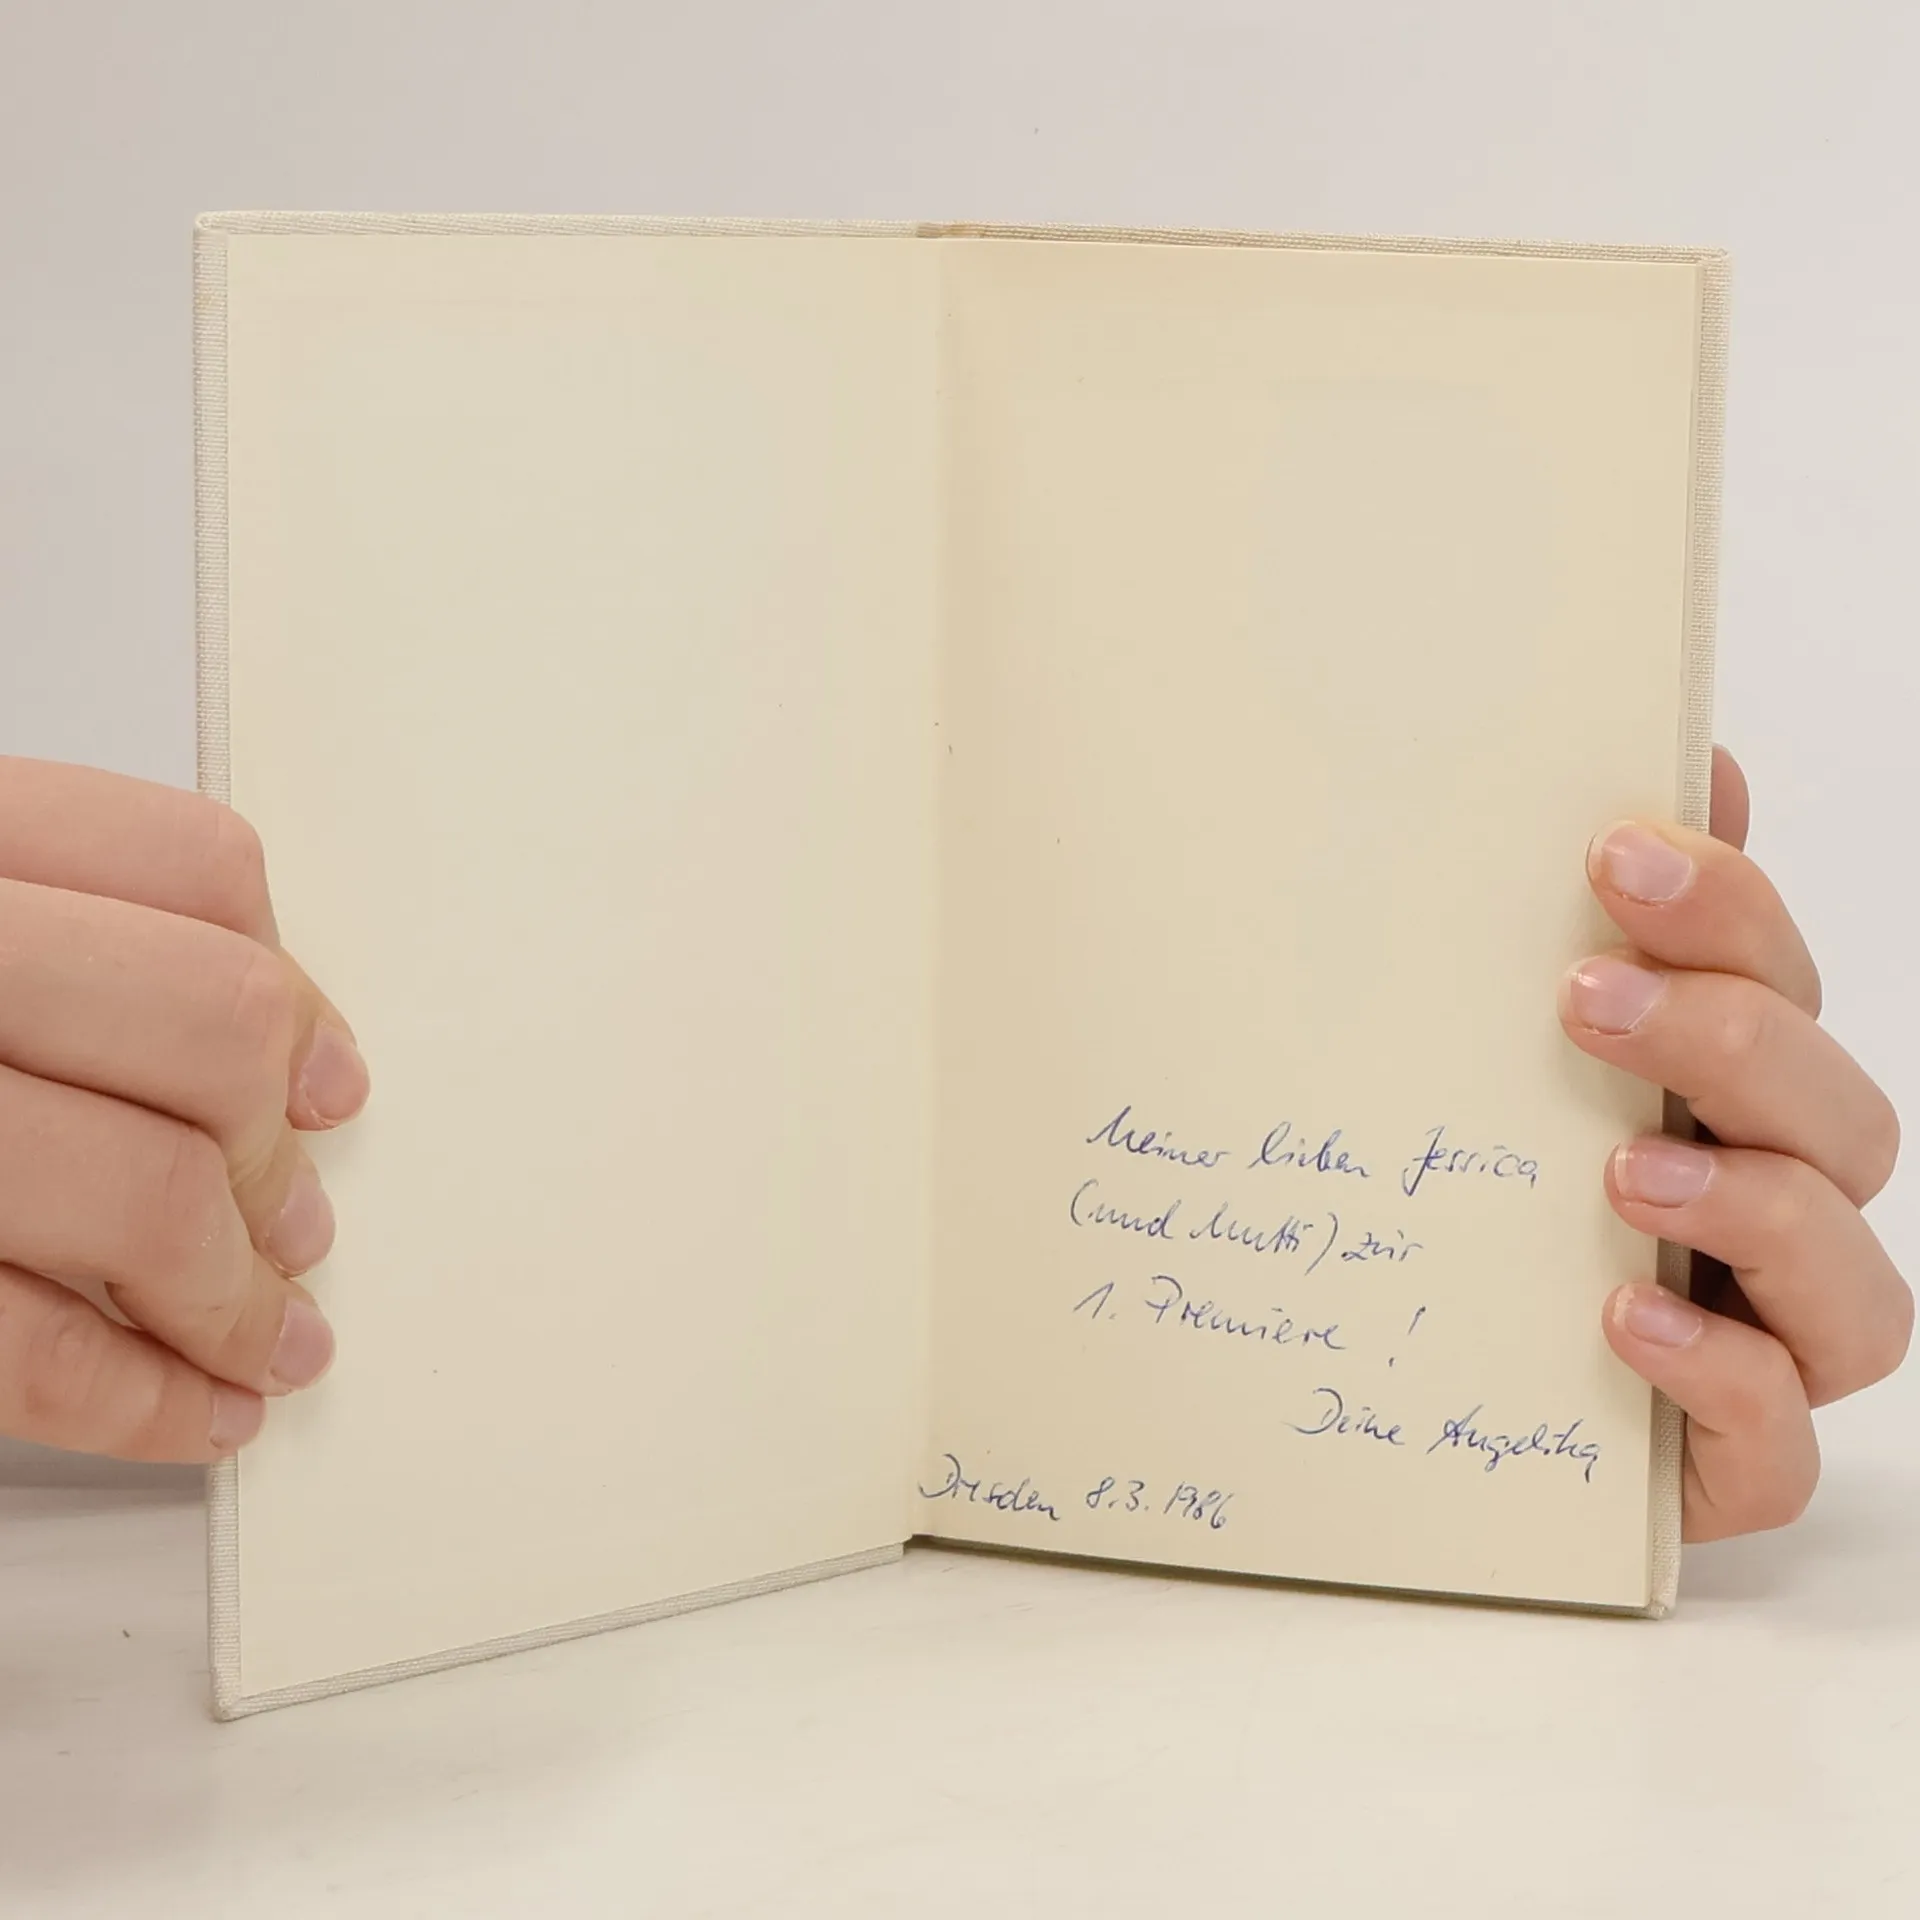 Meiner lieben Jessica
(und Mutti) zur
1. Premiere !
Deine Angelika
Dresden 8.3.1986